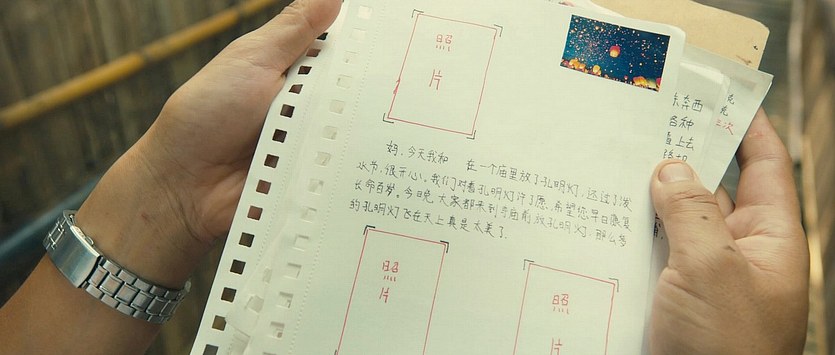 照
片
妈，今天我和 在一个庙里放了孔明灯，还过了泼
水节，很开心，我们对着孔明灯许了愿，希望您早日康复
长命百岁。今日晚，大家都来到寺庙前放孔明灯，那么多
的孔明灯飞在天上真是太美了.
照
片
照
片
东奔西
各种
着上去
二次